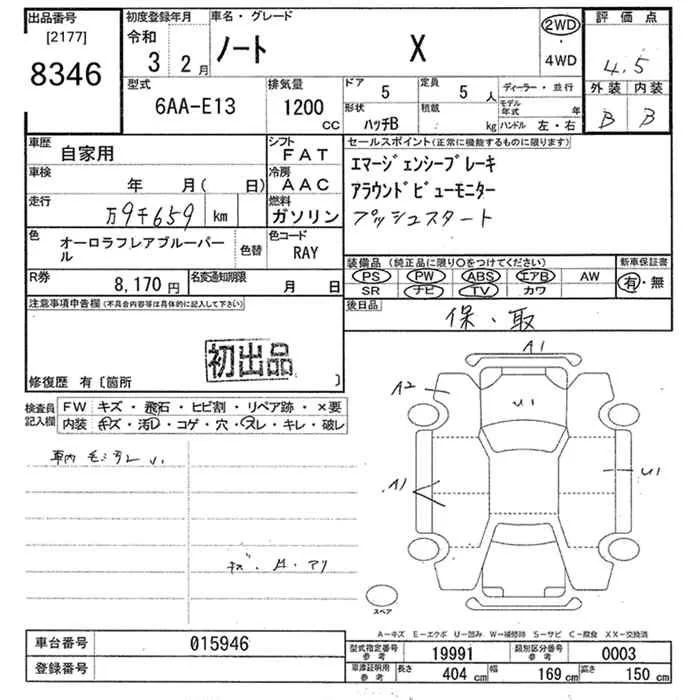 出品番号
[2177]
8346
初度登録年月
令和
3 2月
車名・グレード
ノート X
2WD
・
4WD
評価点
4.5
外装 内装
B B
型式
6AA-E13
排気量
1200
CC
ドア
5
定員
5 人
形状
ハッチB
積載
kg
ディーラー・並行
モデル年式 年
ハンドル 左・右
車歴
自家用
シフト
FAT
車検
年 月( 日)
冷房
AAC
走行
万9千659 km
燃料
ガソリン
色
オーロラフレアブルーパール
色替
色コード
RAY
R券
8,170 円
名変通知期限
月 日
セールスポイント(正常に機能するものに限ります)
エマージェンシーブレーキ
アラウンドビューモニター
プッシュスタート
装備品 (純正品に限り○をつけてください)
PS PW ABS エアB AW
SR ナビ TV カワ
新車保証書
有・無
後日品
保・取
注意事項申告欄(不具合内容等は具体的に記入して下さい)
初出品
修復歴 有〔箇所 〕
検査員
記入欄
FW キズ・飛石・ヒビ割・リペア跡・×要
内装 キズ・汚レ・コゲ・穴・スレ・キレ・破レ
車内
A1
A2
U1
A1
U1
スペア
A-キズ E-エクボ U-凹み W-補修跡 S-サビ C-腐食 XX-交換済
車台番号 015946
登録番号
型式指定番号
参考
19991
類別区分番号
参考
0003
車庫証明用
参考
長さ 404 cm 幅 169 cm 高さ 150 cm